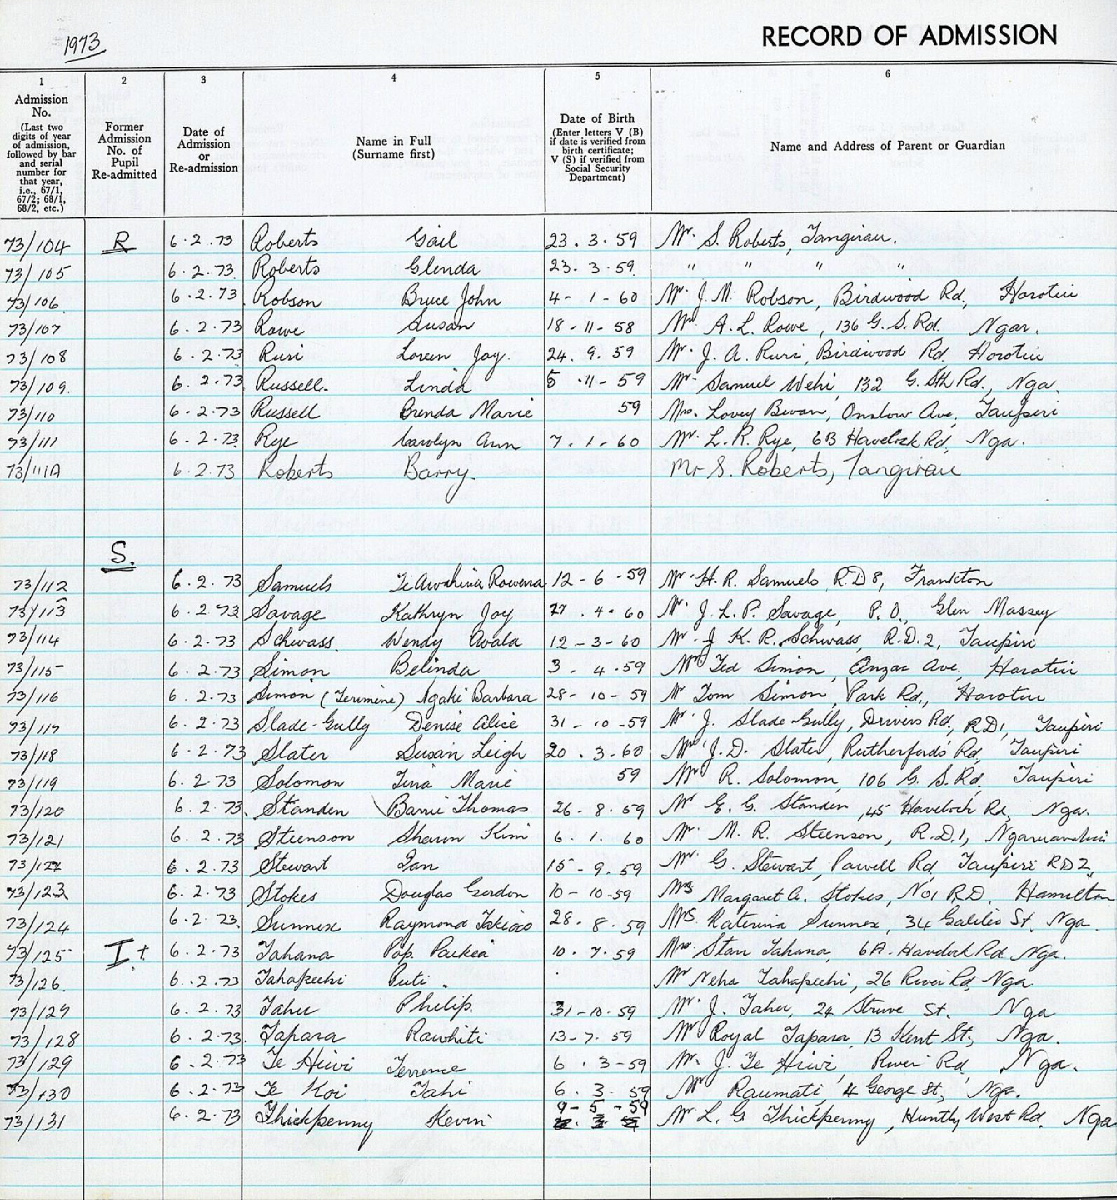 1973
RECORD OF ADMISSION
1 2 3 4 5 6
Admission No. (Last two digits of year of admission, followed by bar and serial number for that year, i.e., 67/1, 67/2; 68/1, 68/2, etc.)
Former Admission No. of Pupil Re-admitted
Date of Admission or Re-admission
Name in Full (Surname first)
Date of Birth (Enter letters V (B) if date is verified from birth certificate; V (S) if verified from Social Security Department)
Name and Address of Parent or Guardian
73/104 R 6.2.73 Roberts Gail 23.3.59 Mr. S. Roberts, Tangirau.
73/105 6.2.73 Roberts Glenda 23.3.59 " " " "
73/106 6.2.73 Robson Bruce John 4-1-60 Mr. J. M. Robson, Birdwood Rd, Horotiu
73/107 6.2.73 Rowe Susan 18-11-58 Mr A.L. Rowe, 136 G.S. Rd. Ngar.
73/108 6.2.73 Ruri Loreen Joy. 24.9.59 Mr. J. A. Ruri, Birdwood Rd. Horotiu
73/109. 6.2.73 Russell. Linda 5.11-59 Mr. Samuel Wehi, 132 G. Sth Rd., Nga
73/110 6.2.73 Russell Brenda Marie 59 Mrs. Lovey Onslow Ave, Taupiri
73/111 6.2.73 Rye Carolyn Ann 7.1.60 Mr. L.R. Rye, 6B Havelock Rd, Nga.
73/111A 6.2.73 Roberts Barry. Mr S. Roberts, Tangirau
S.
73/112 6.2.73 Samuels Te Rowena 12-6-59 Mr. H. R. Samuels, R.D 8, Frankton
73/113 6.2.73 Savage Kathryn Joy 27.4.60 Mr. J. L. P. Savage, P.O., Glen Massey
73/114 6.2.73 Schwass. Wendy 12-3-60 Mr. J K. R. Schwass, R.D.2, Taupiri
73/115 6.2.73 Simon Belinda 3-4.59 Mr Ted Simon, Anzac Ave, Horotiu
73/116 6.2.73 Simon Barbara 28-10-59 Mr Tom Simon, Park Rd, Horotiu
73/117 6.2.73 Slade-Gully Denise Alice 31-10-59 Mr. J. Slade-Gully, Drivers Rd, RD1, Taupiri
73/118 6.2.73 Slater Susan Leigh 20.3.60 Mr. J.D. Slater, Rutherfords Rd, Taupiri
73/119 6.2.73 Solomon Tina Marie 59 Mr R. Solomon, 106 G.S. Rd, Taupiri
73/120 6.2.73. Standen Barrie Thomas 26-8.59 Mr G. G. Standen, 45 Havelock Rd, Nga.
73/121 6.2.73 Steenson Sharon Kim 6.1.60 Mr. M. R. Steenson, R.D.1, Ngaruawahia
73/122 6.2.73 Stewart Ian 15-9.59 Mr. G. Stewart, Powell Rd, Taupiri RD2,
73/123 6.2.73 Stokes Douglas Gordon 10-10-59 Mrs Margaret A. Stokes, No 1 R.D. Hamilton
73/124 6.2.73. Sunnex Raymond 28.8.59 Mrs. Katerina Sunnex, 34 Galileo St, Nga.
73/125 T. 6.2.73 Tahana Pop. Paikea 10.7.59 Mrs Stan Tahana, 6A Havelock Rd, Nga.
73/126 6.2.73 Tahapeehi Puti. Mr Neha Tahapeehi, 26 River Rd, Nga
73/127 6.2.73 Tahu Philip. 31-10-59 Mr. J. Tahu, 24 Struve St. Nga
73/128 6.2.73. Tapara Rawhiti 13-7.59 Mr Royal Tapara, 13 Kent St, Nga.
73/129 6.2.73 Te Hiwi Terrence 6.3-59 Mr. J. Te Hiwi, River Rd, Nga.
73/130 6.2.73 Te Koi Tahi 6.3.59 Mr Raumati 4 George St, Nga.
73/131 6.2.73 Thickpenny Kevin 9-5-59 Mr L. G Thickpenny, Huntly West Rd. Nga